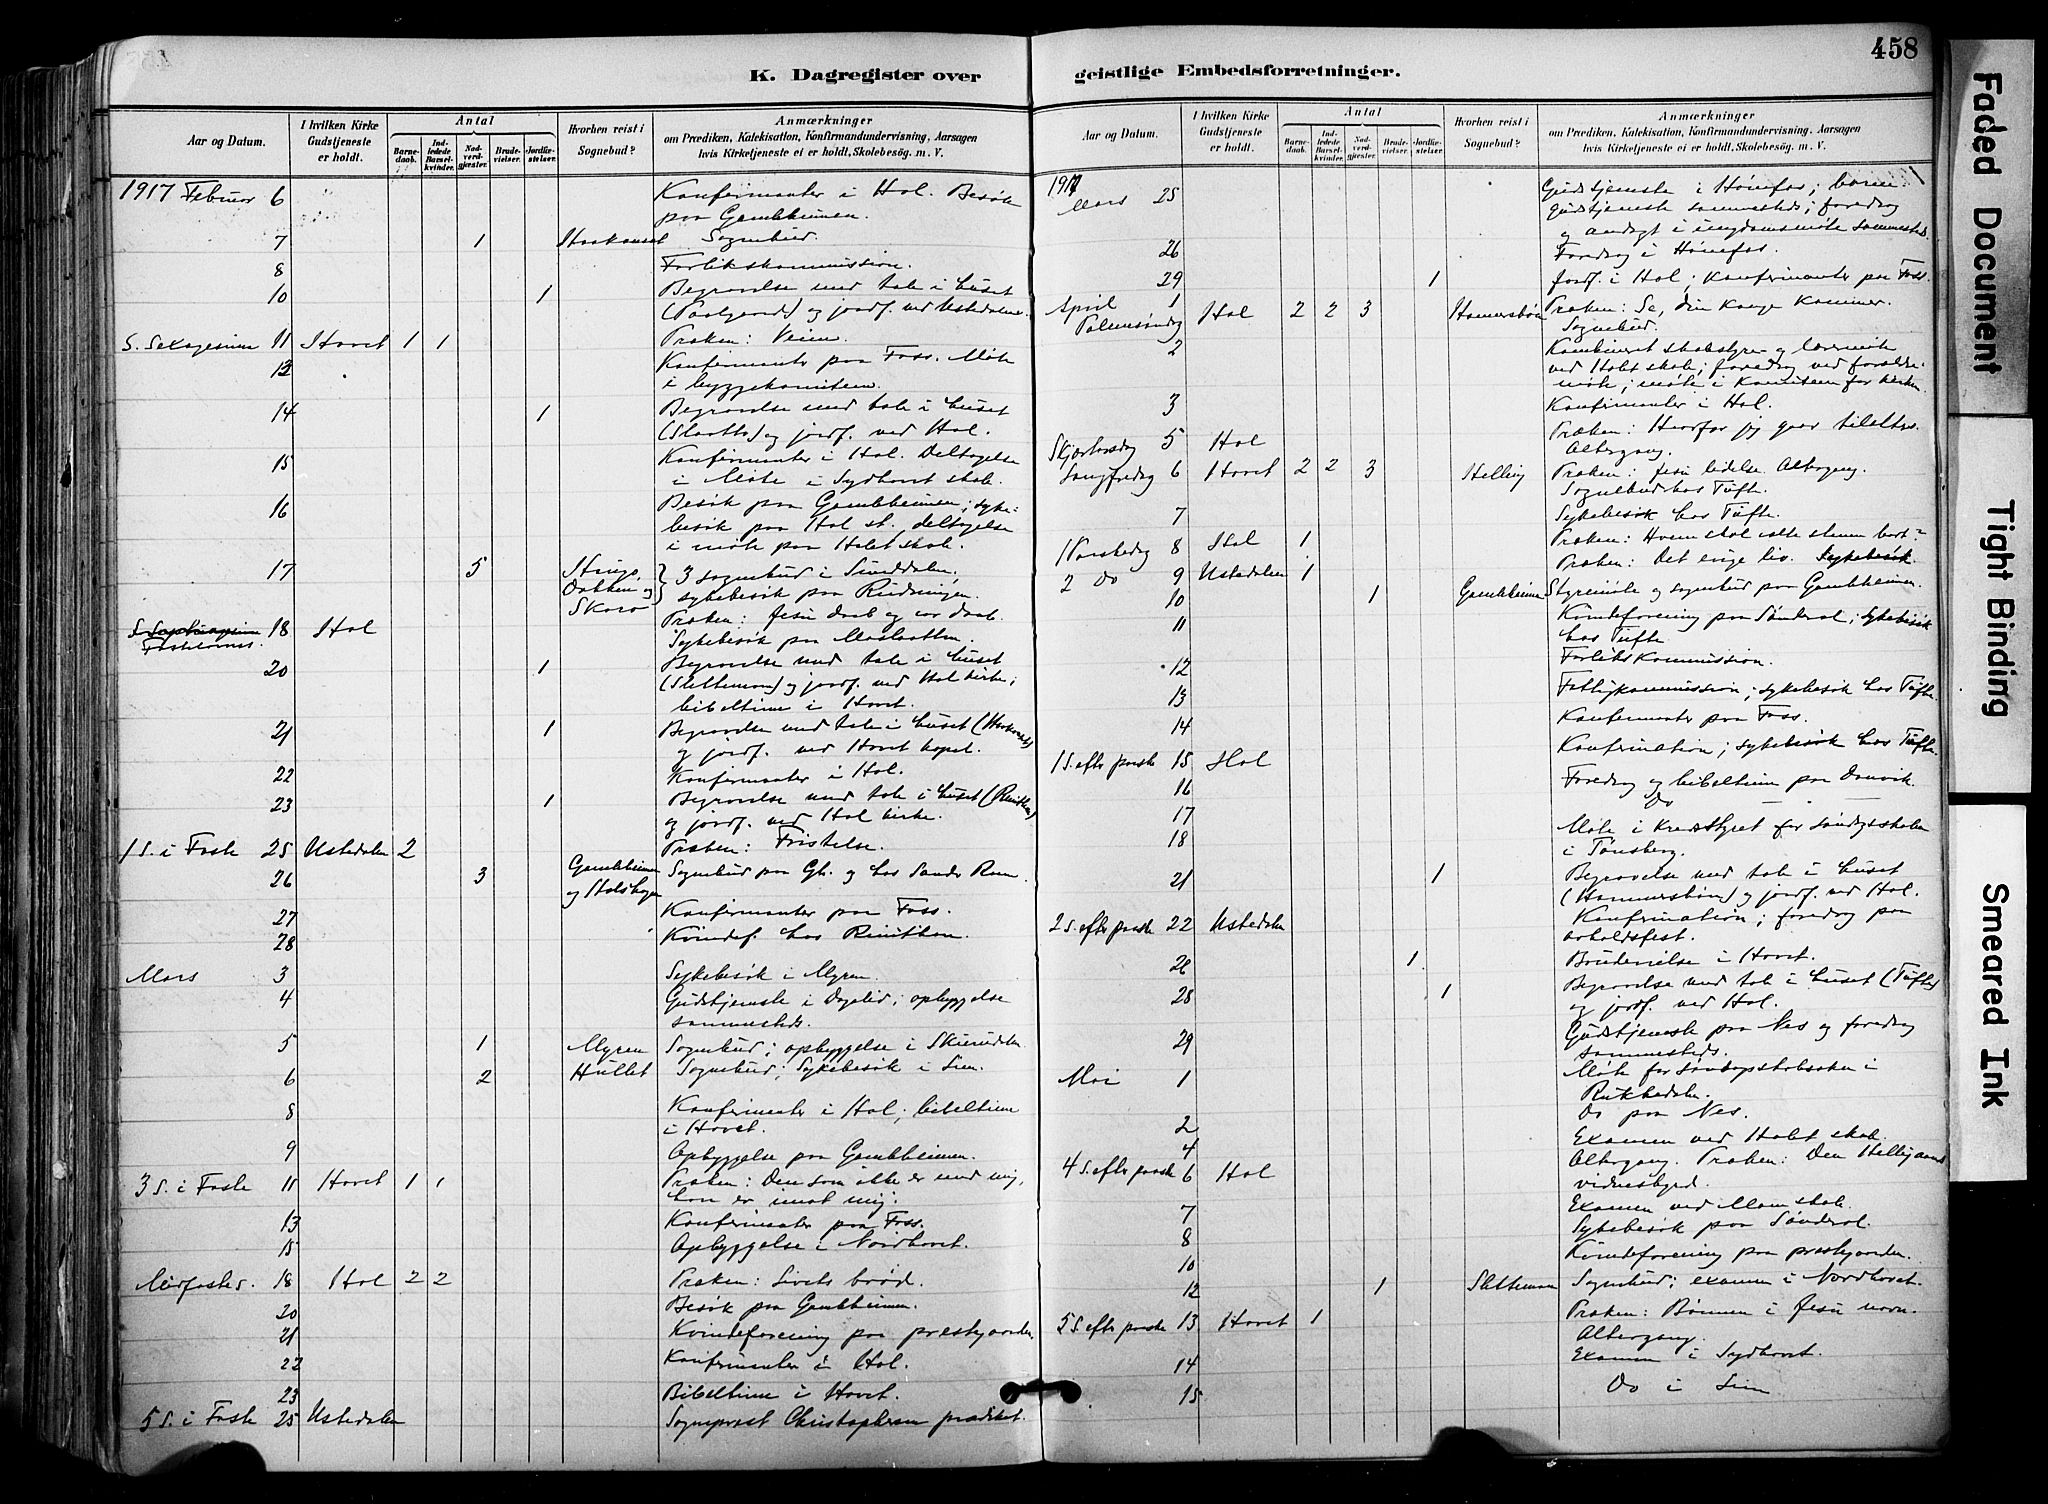 458
K. Dagregister over
Aar og Datum.
I hvilken Kirke Gudstjeneste er holdt.
Antal
Barne-daab.
Ind-ledede Barsel-kvinder.
Nad-verd-gjester.
Brude-vielser.
Jordfæ-stelser.
Hvorhen reist i Sognebud?
Anmærkninger
om Prædiken, Katekisation, Konfirmandundervisning, Aarsagen
hvis Kirketjeneste ei er holdt, Skolebesög. m. V.
1917 Februar 6 Konfirmanter i Hol. Besök
paa Gamleheimen.
7 1 Sognebud.
8 Forlikskommission.
10 1 Begravelse med tale i huset
og jordf. ved Ustedalen.
S. Sexagesima 11 Hovet 1 1 Præken: Veien.
13 Konfirmanter paa Foss. Møte
i byggekomiteen.
14 1 Begravelse med tale i huset
(Slaatto) og jordf. ved Hol.
15 Konfirmanter i Hol. Deltagelse
i Møte i Sydhovet skole.
16 Besök paa Gamleheimen; syke-
besök paa Hol st. deltagelse
i møte paa Holet skole.
17 5 Skaro 3 sognebud i Sunddalen,
sykebesök paa Rudningen.
18 Hol Præken: Jesu daab og vor daab.
Sykebesök paa
Fastelavns.
20 1 Begravelse med tale i huset
(Sletteman) og jordf. ved Hol kirke;
bibeltime i Hovet.
21 1 Begravelse med tale i huset
og jordf. ved Hovet kapel.
22 Konfirmanter i Hol.
23 1 Begravelse med tale i huset
og jordf. ved Hol kirke.
1 S. i Faste 25 Ustedalen 2 Præken: Fristelse.
26 3 Gamleheimen Sognebud paa Gh. og hos Sander
27 Konfirmanter paa Foss.
28 Kvindef. hos
Mars 3 Sykebesök i Myren.
4 Gudstjeneste i Dagalid; opbyggelse
sammesteds.
5 1 Myren Sognebud; opbyggelse i Skurdalen
6 2 Hullet Sognebud; Sykebesök i Lien.
8 Konfirmanter i Hol; bibeltime
i Hovet.
9 Opbyggelse paa Gamleheimen.
3 S. i Faste 11 Hovet 1 1 Præken: Den som ikke er med mig,
han er imot mig.
13 Konfirmanter paa Foss.
15 Opbyggelse i Nordhovet.
Midfastes. 18 Hol 2 2 Præken: Livets brød.
20 Besök paa Gamleheimen.
21 Kvindeforening paa prestgaarden
22 Konfirmanter i Hol.
23 Bibeltime i Hovet.
5 S. i Faste 25 Ustedalen Sogneprest Christophersen prædiket.
geistlige Embedsforretninger.
Aar og Datum.
I hvilken Kirke Gudstjeneste er holdt.
Antal
Barne-daab.
Ind-ledede Barsel-kvinder.
Nad-verd-gjester.
Brude-vielser.
Jordfæ-stelser.
Hvorhen reist i Sognebud?
Anmærkninger
om Prædiken, Katekisation, Konfirmandundervisning, Aarsagen
hvis Kirketjeneste ei er holdt, Skolebesög. m. V.
1917
Mars 25 Gudstjeneste i Hønefos; barne
gudstjeneste sammesteds; foredrag
og andagt i ungdomsmøte sammesteds.
26 Foredrag i Hønefos.
29 1 Jordf. i Hol; Konfirmanter paa Foss.
April 1 Palmesøndag Hol 2 2 3 Præken: Se, din konge kommer.
Sognebud.
2 Kombineret skolestyre- og lærermøte
ved Holet skole; foredrag ved forældre-
møte; møte i Komiteen for kirken
3 Konfirmanter i Hol.
Skjærtorsdag 5 Hol Præken: Hvorfor jeg gaar til alters.
Altergang.
Langfredag 6 Hovet 2 2 3 Præken: Jesu lidelse. Altergang.
Sognebud hos Tufte.
7 Sykebesök hos Tufte.
1 Paaskedag 8 Hol 1 Præken: Hvem skal vælte stenen bort?
2 Do 9 Ustedalen 1 Præken: Det evige liv. Sykebesök
10 1 Gamleheimen Styremøte og sognebud paa Gamleheimen.
11 Kvindeforening paa Sønderal; sykebesök
hos Tufte.
12 Forlikskommission.
13 Fattigkommission; sykebesök hos Tufte.
14 Konfirmanter paa Foss.
1 S. efter paaske 15 Hol Konfirmation; sykebesök hos Tufte.
16 Foredrag og bibeltime paa Danvik
17 Do
18 Møte i Kredsstyret for søndagsskolen
i Tønsberg.
21 1 Begravelse med tale i huset
(Hammersbøen) og jordf. ved Hol.
2 S. efter paaske 22 Ustedalen Konfirmation; foredrag paa
avholdsfest.
26 1 Brudevielse i Hovet.
28 1 Begravelse med tale i huset (Tufte)
og jordf. ved Hol.
29 Gudstjeneste paa Nes og foredrag
sammesteds.
Mai 1 Møte for søndagsskolesaken i
Rukkedalen.
2 Do paa Nes.
4 Examen ved Holet skole.
4 S. efter paaske 6 Hol Altergang. Præken: Den Hellig aands
vidnesbyrd.
7 Examen ved Moen skole.
8 Sykebesök paa Sønderal.
10 Kvindeforening paa prestgaarden.
12 1 Sletteman Sognebud; examen i Nordhovet.
5 S. efter paaske 13 Hovet 1 Præken: Bønnen i Jesu navn.
Altergang.
14 Examen i Sydhovet.
15 Do i Lien
Faded Document
Tight Binding
Smeared Ink